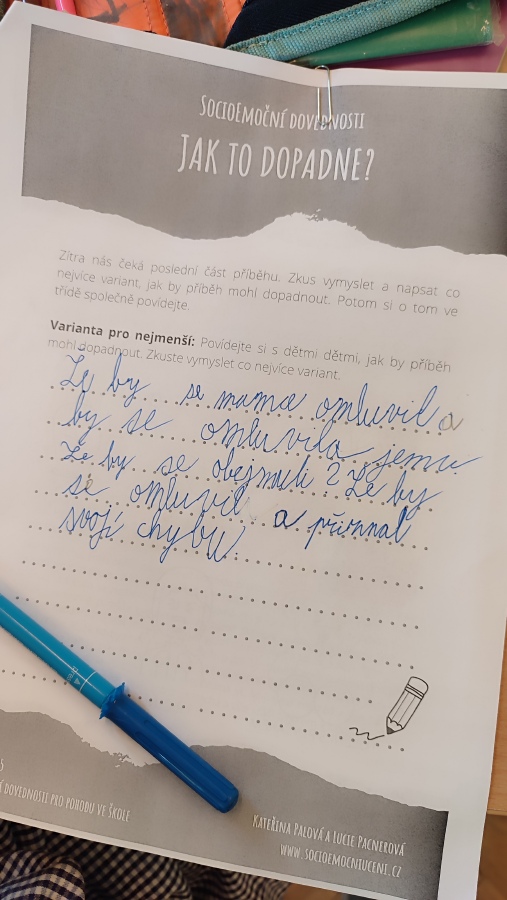 SOCIOEMOČNÍ DOVEDNOSTI
JAK TO DOPADNE?
Zítra nás čeká poslední část příběhu. Zkus vymyslet a napsat co
nejvíce variant, jak by příběh mohl dopadnout. Potom si o tom ve
třídě společně povídejte.
Varianta pro nejmenší: Povídejte si s dětmi dětmi, jak by příběh
mohl dopadnout. Zkuste vymyslet co nejvíce variant.
Že by se mamce omluvil a
by se omluvila jemu
Že by se obejmuli? Že by
se omluvil a přiznal
svojí chybu.
5
DOVEDNOSTI PRO POHODU VE ŠKOLE
KATEŘINA PALOVÁ A LUCIE PACNEROVÁ
WWW.SOCIOEMOCNIUCENI.CZ